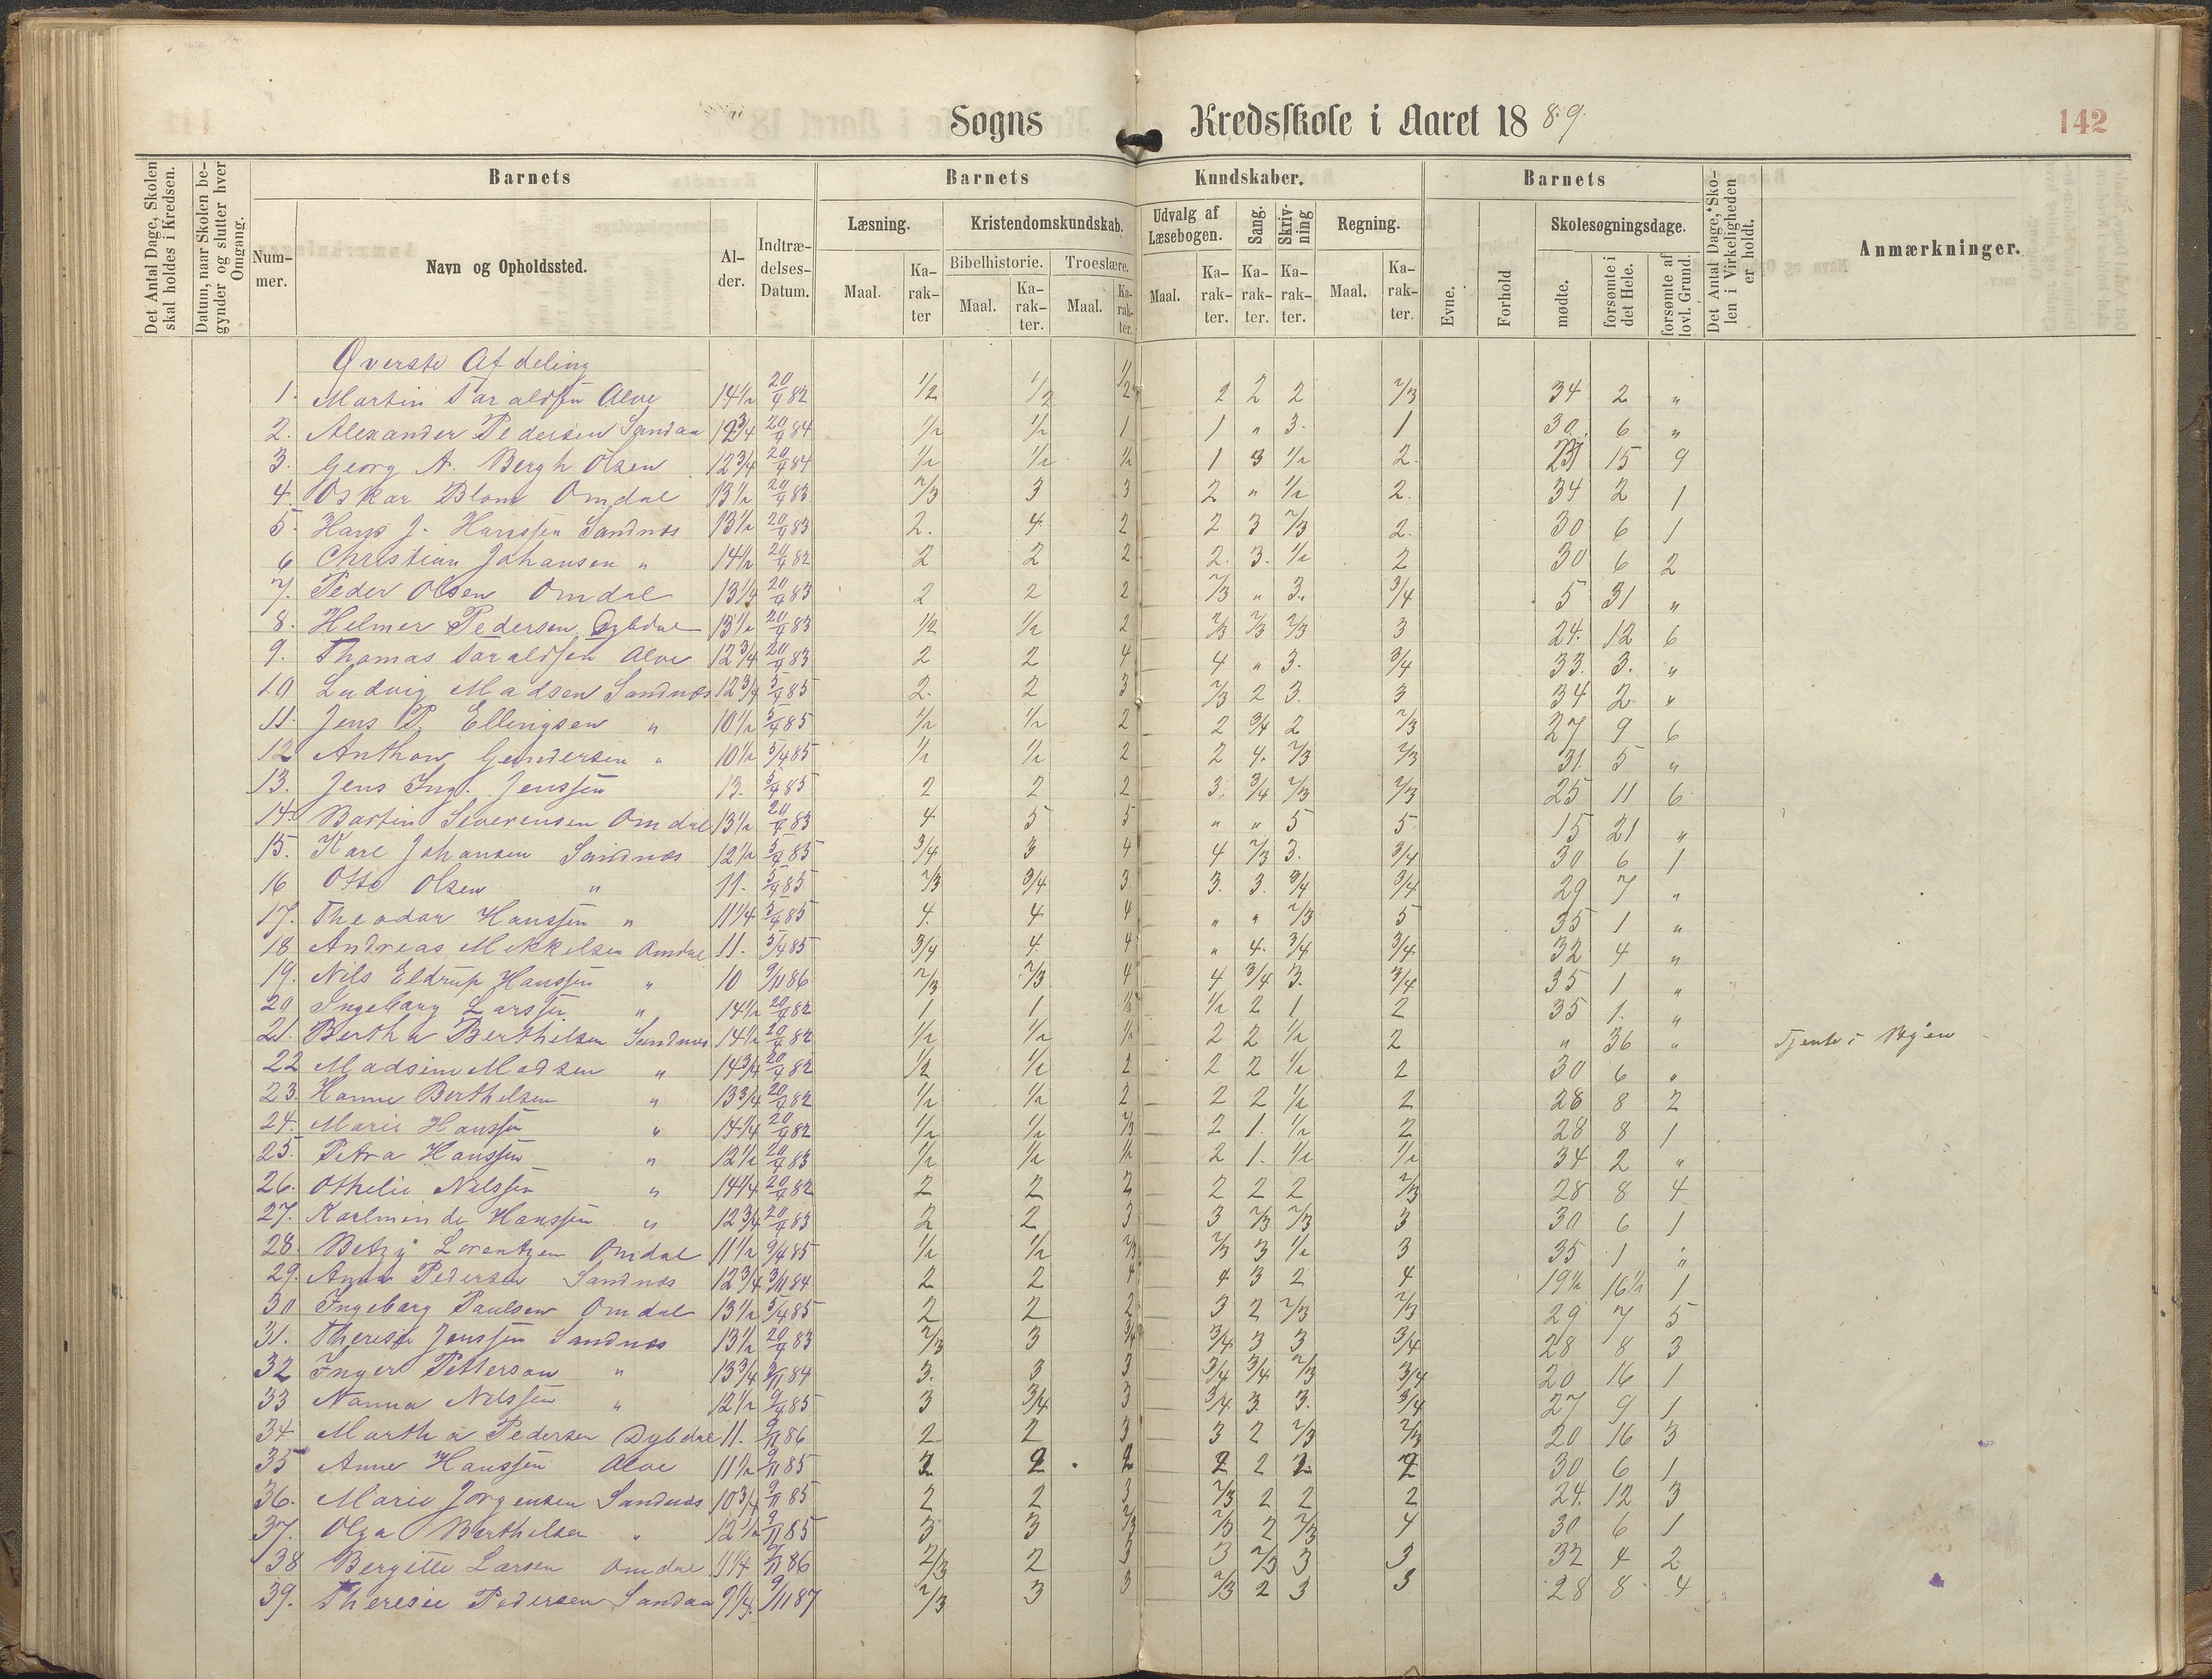 Sogns Kredsskole i Aaret 1889. 142
Det Antal Dage, Skolen skal holdes i Kredsen. Datum, naar Skolen begynder og slutter hver Omgang. Barnets Barnets Kundskaber. Barnets Det Antal Dage, Skolen i Virkeligheden er holdt. Anmærkninger.
Nummer. Navn og Opholdssted. Alder. Indtrædelses-Datum. Læsning. Kristendomskundskab. Udvalg af Læsebogen. Sang. Skrivning Regning. Evne. Forhold Skolesøgningsdage.
Bibelhistorie. Troeslære. mødte. forsømte i det Hele. forsømte af lovl. Grund.
Maal. Karakter Maal. Karakter. Maal. Karakter. Maal. Karakter. Karakter. Karakter. Maal. Karakter.
Øverste Afdeling
1. Martin Taraldsen Alve 14½ 20/4 82 ½ ½ ½ 2 2 2 2/3 34 2 "
2. Alexander Pedersen Sandaa 12¾ 20/4 84 ½ ½ 1 1 " 3. 1 30. 6 "
3. Georg A. Bergh Olsen 12¾ 20/4 84 ½ ½ ½ 1 3 ½ 2. 21 15 9
4. Oskar Blom Omdal 13½ 20/4 83 2/3 3 3 2 " ½ 2. 34 2 1
5. Hans J. Hanssen Sandnæs 13½ 20/4 83 2. 4 2 2 3 2/3 2. 30 6 1
6 Christian Johansen " 14½ 20/4 82 2 2 2 2. 3. ½ 2 30 6 2
7. Peder Olsen Omdal 13¼ 20/4 83 2 2 2 2/3 " 3. 3/4 5 31 "
8. Helmer Pedersen Dybdal 13½ 20/4 83 ½ ½ 2 2/3 2/3 2/3 3 24. 12 6
9. Thomas Taraldsen Alve 12¾ 20/4 83 2 2 4 4 " 3. 3/4 33. 3. "
10 Ludvig Madsen Sandnæs 12¾ 5/4 85 2. 2 3 2/3 2 3. 3 34 2 "
11. Jens P. Ellingsen " 10½ 5/4 85 ½ ½ 2 2 3/4 2 2/3 27 9 6
12 Anthon Gundersen " 10½ 5/4 85 ½ ½ 2 2 4. 2/3 2/3 31. 5 "
13. Jens Ingv. Jenssen 13. 5/4 85 2 2 2 3. 3/4 2/3 2/3 25 11 6
14. Bastin Severensen Omdal 13½ 20/4 83 4 5 5 " " 5 5 15 21 "
15. Karl Johansen Sandnæs 12½ 5/4 85 3/4 3 4 4 2/3 3. 3/4 30 6 1
16 Otto Olsen " 11. 5/4 85 2/3 3/4 3 3. 3. 3/4 3/4 29 7 "
17. Theodor Hanssen " 11¼ 5/4 85 4. 4 4 " " 2/3 5 35 1 "
18 Andreas Mikkelsen Omdal 11. 5/4 85 3/4 4. 4 " 4. 3/4 3/4 32 4 "
19. Nils Eldrup Hanssen " 10 9/11 86 2/3 2/3 4 4 3/4 3. 3/4 35 1 "
20 Ingeborg Larssen " 14½ 20/4 82 1 1 ½ ½ 2 1 2 35 1. "
21. Bertha Berthelsen Sandnæs 14½ 20/4 82 ½ ½ ½ 2 2 ½ 2 " 36 " Tjente i Byen
22 Madsine Madsen " 14¾ 20/4 82 ½ ½ 2 2 2 ½ 2 30 6 "
23. Hanne Berthelsen " 13¾ 20/4 82 ½ ½ 2 2 2 ½ 2 28 8 2
24. Marie Hanssen " 14¼ 20/4 82 ½ ½ 2/3 2 1. ½ 2 28 8 1
25. Petra Hanssen " 12½ 20/4 83 ½ ½ ½ 2 1. ½ ½ 34 2 "
26. Othelie Nilssen " 14¼ 20/4 82 2 2 2 2 2 2 2/3 28 8 4
27. Karlminde Hanssen " 12¾ 20/4 83 2 2 3 3 2/3 2/3 3 30 6 1
28. Betzy Lorentzen Omdal 11½ 9/4 85 ½ ½ 2/3 2/3 3 ½ 3 35 1 "
29. Anna Pedersen Sandnæs 12¾ 3/11 84 2 2 4 4 3 2 4 19½ 16½ 1
30 Ingeborg Paulsen Omdal 13½ 5/4 85 2 2 2 3 2 2/3 2/3 29 7 5
31. Therese Jenssen Sandnæs 13½ 20/4 83 2/3 3 3/4 3/4 3 3 3/4 28 8 3
32 Inger Petterson " 13¾ 3/11 84 3. 3 3 3/4 3/4 2/3 3/4 20 16 1
33 Nanna Nilssen " 12½ 9/4 85 3 3/4 3 3/4 3. 3. 3/4 27 9 1
34 Martha Pedersen Dybdal 11. 9/11 86 2 2 3 3 2 2/3 2/3 20 16 3
35 Anne Hanssen Alve 11½ 9/11 85 2 2 2 2 2 2 2 30 6 1
36. Marie Jørgensen Sandnæs 10¾ 9/11 85 2 2 3 2/3 2 2 2 24. 12 3
37. Olga Berthelsen " 12½ 9/11 85 3 3 2/3 2/3 2 2/3 4 30 6 1
38 Bergitte Larsen Omdal 11¼ 9/11 86 2/3 2 3 3 2/3 3 3 32 4 2
39. Theresie Pedersen Sandaa 9¼ 9/11 87 2/3 3 3 2/3 2 3 3 28 8 4